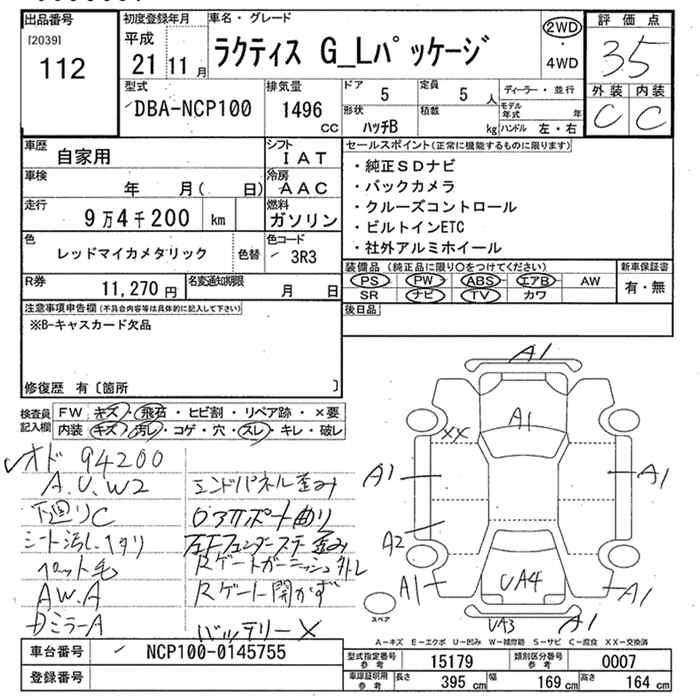 出品番号
[2039]
112
初度登録年月
平成
21 11 月
車名・グレード
ラクティス G_Lパッケージ
2WD
・
4WD
評価点
35
外装 内装
C C
型式
DBA-NCP100
排気量
1496
CC
ドア 5
定員 5 人
形状 ハッチB
積載 kg
ディーラー・並行
モデル年式 年
ハンドル 左・右
車歴 自家用
シフト IAT
車検 年 月( 日)
冷房 AAC
走行 9万4千200 km
燃料 ガソリン
色 レッドマイカメタリック
色替
色コード 3R3
R券 11,270 円
名変通知期限 月 日
セールスポイント(正常に機能するものに限ります)
・純正SDナビ
・バックカメラ
・クルーズコントロール
・ビルトインETC
・社外アルミホイール
装備品(純正品に限り○をつけてください)
PS PW ABS エアB AW
SR ナビ TV カワ
新車保証書
有・無
後日品
注意事項申告欄(不具合内容等は具体的に記入して下さい)
※B-キャスカード欠品
修復歴 有〔箇所 〕
検査員記入欄
FW キズ・飛石・ヒビ割・リペア跡・×要
内装 キズ・汚レ・コゲ・穴・スレ・キレ・破レ
オド 94200
A.U.W2
下廻りC
シート汚し、ヘタリ
ペット毛
AW.A
Dミラーa
エンドパネル歪み
ロアサポート曲り
左Fフェンダーステー歪み
Rゲートガーニッシュ外レ
Rゲート開かず
バッテリー×
A1
A1
XX
A1
A1
A2
A1
UA4
A1
UA3
A1
スペア
A-キズ E-エクボ U-凹み W-補修跡 S-サビ C-腐食 XX-交換済
車台番号 NCP100-0145755
登録番号
型式指定番号 参考 15179
類別区分番号 参考 0007
車庫証明用 参考 長さ 395 cm 幅 169 cm 高さ 164 cm